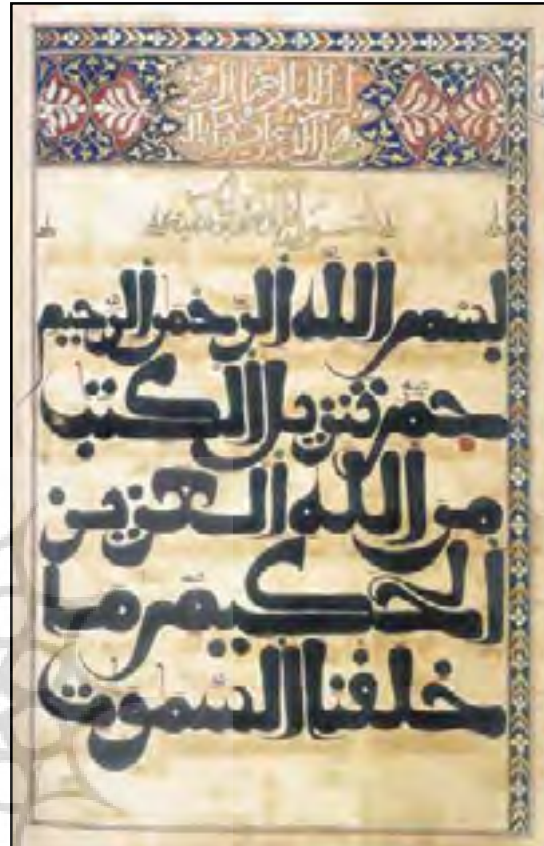 بسم الله الرحمن الرحيم
حم تنزيل الكتب
من الله العزيز
الحكيم ما
خلقنا السموت